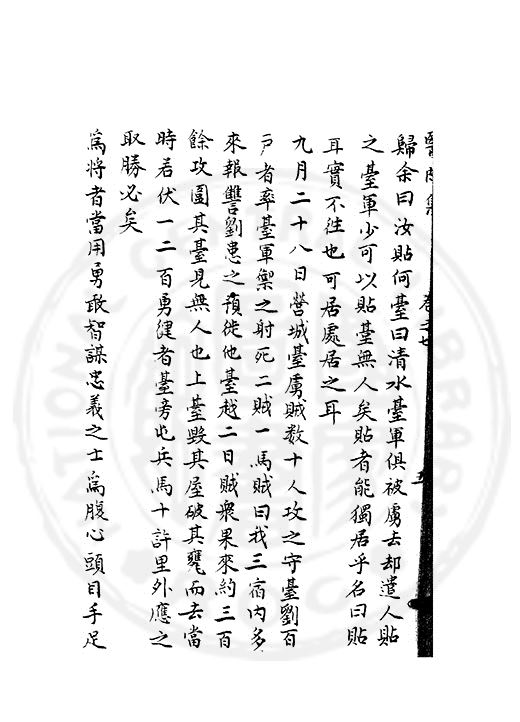 歸余曰汝貼何臺曰清水臺軍俱被虜去却遣人貼
之臺軍少可以貼臺無人矣貼者能獨居乎名曰貼
耳實不徃也可居處居之耳
九月二十八日營城臺虜賊数十人攻之守臺劉百
戶者率臺軍禦之射死二賊一馬賊曰我三宿内多
來報讐劉患之預徙他臺越二日賊衆果來約三百
餘攻圍其臺見無人也上臺毀其屋破其甕而去當
時若伏一二百勇健者臺旁屯兵馬十許里外應之
取勝必矣
爲將者當用勇敢智謀忠義之士爲腹心頭目手足